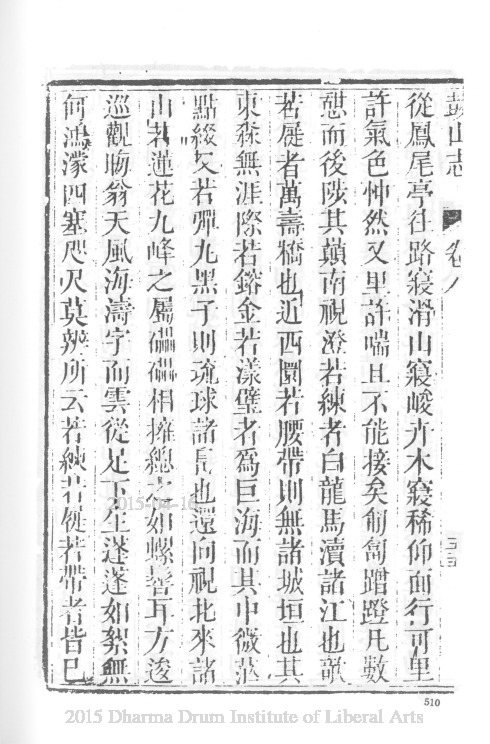 鼓山志 卷八
從鳳尾亭往路寖滑山寖峻卉木寖稀仰面行可里
許氣色忡然又里許喘且不能接矣匍匐蹭蹬凡數
憩而後陟其巔南視澄若練者白龍馬瀆諸江也欹
若屣者萬壽橋也近西圜若腰帶則無諸城垣也其
東淼無涯際若鎔金若漾璧者爲巨海而其中微茫
點綴又若彈丸黑子則琉球諸島也還向視北來諸
山若蓮花九峰之屬礧礧相擁總之如螺髻耳方逡
巡觀晦翁天風海濤字而雲從足下生蓬蓬如絮無
何鴻濛四塞咫尺莫辨所云若練若屣若帶者皆已
510
2015-04-16
2015 Dharma Drum Institute of Liberal Arts